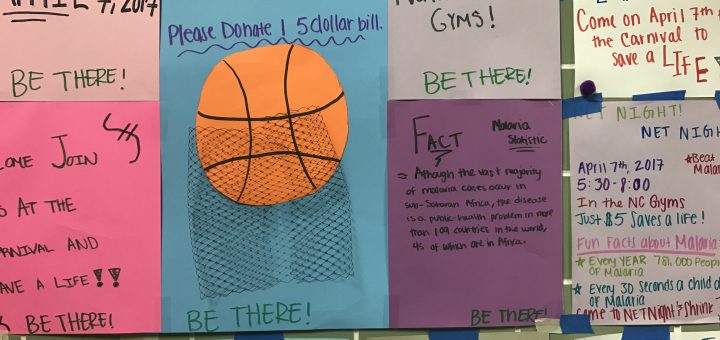 7, 2017
BE THERE!
JOIN
AT THE
AND
A LIFE!!
BE THERE!
Please Donate 1 5 dollar bill.
BE THERE!
GYMS!
BE THERE!
FACT
Malaria
Statistic
= Athough the vast majority
of malaria cases occur in
Sub-Saharan Africa, the disease
is a public-health problem in more
than 109 countries in the world,
45 of which are in Africa.
BE THERE!
Come on April 7th
the Carnival to
save a LIFE
NIGHT!
NET
April 7th, 2017
5:30-8:00
In the NC Gyms
Just $5 saves a life!
Fun Facts about Malaria
Every YEAR 781,000
of Malaria
Every 30 seconds a child
of Malaria
come to NET Night & Shrink